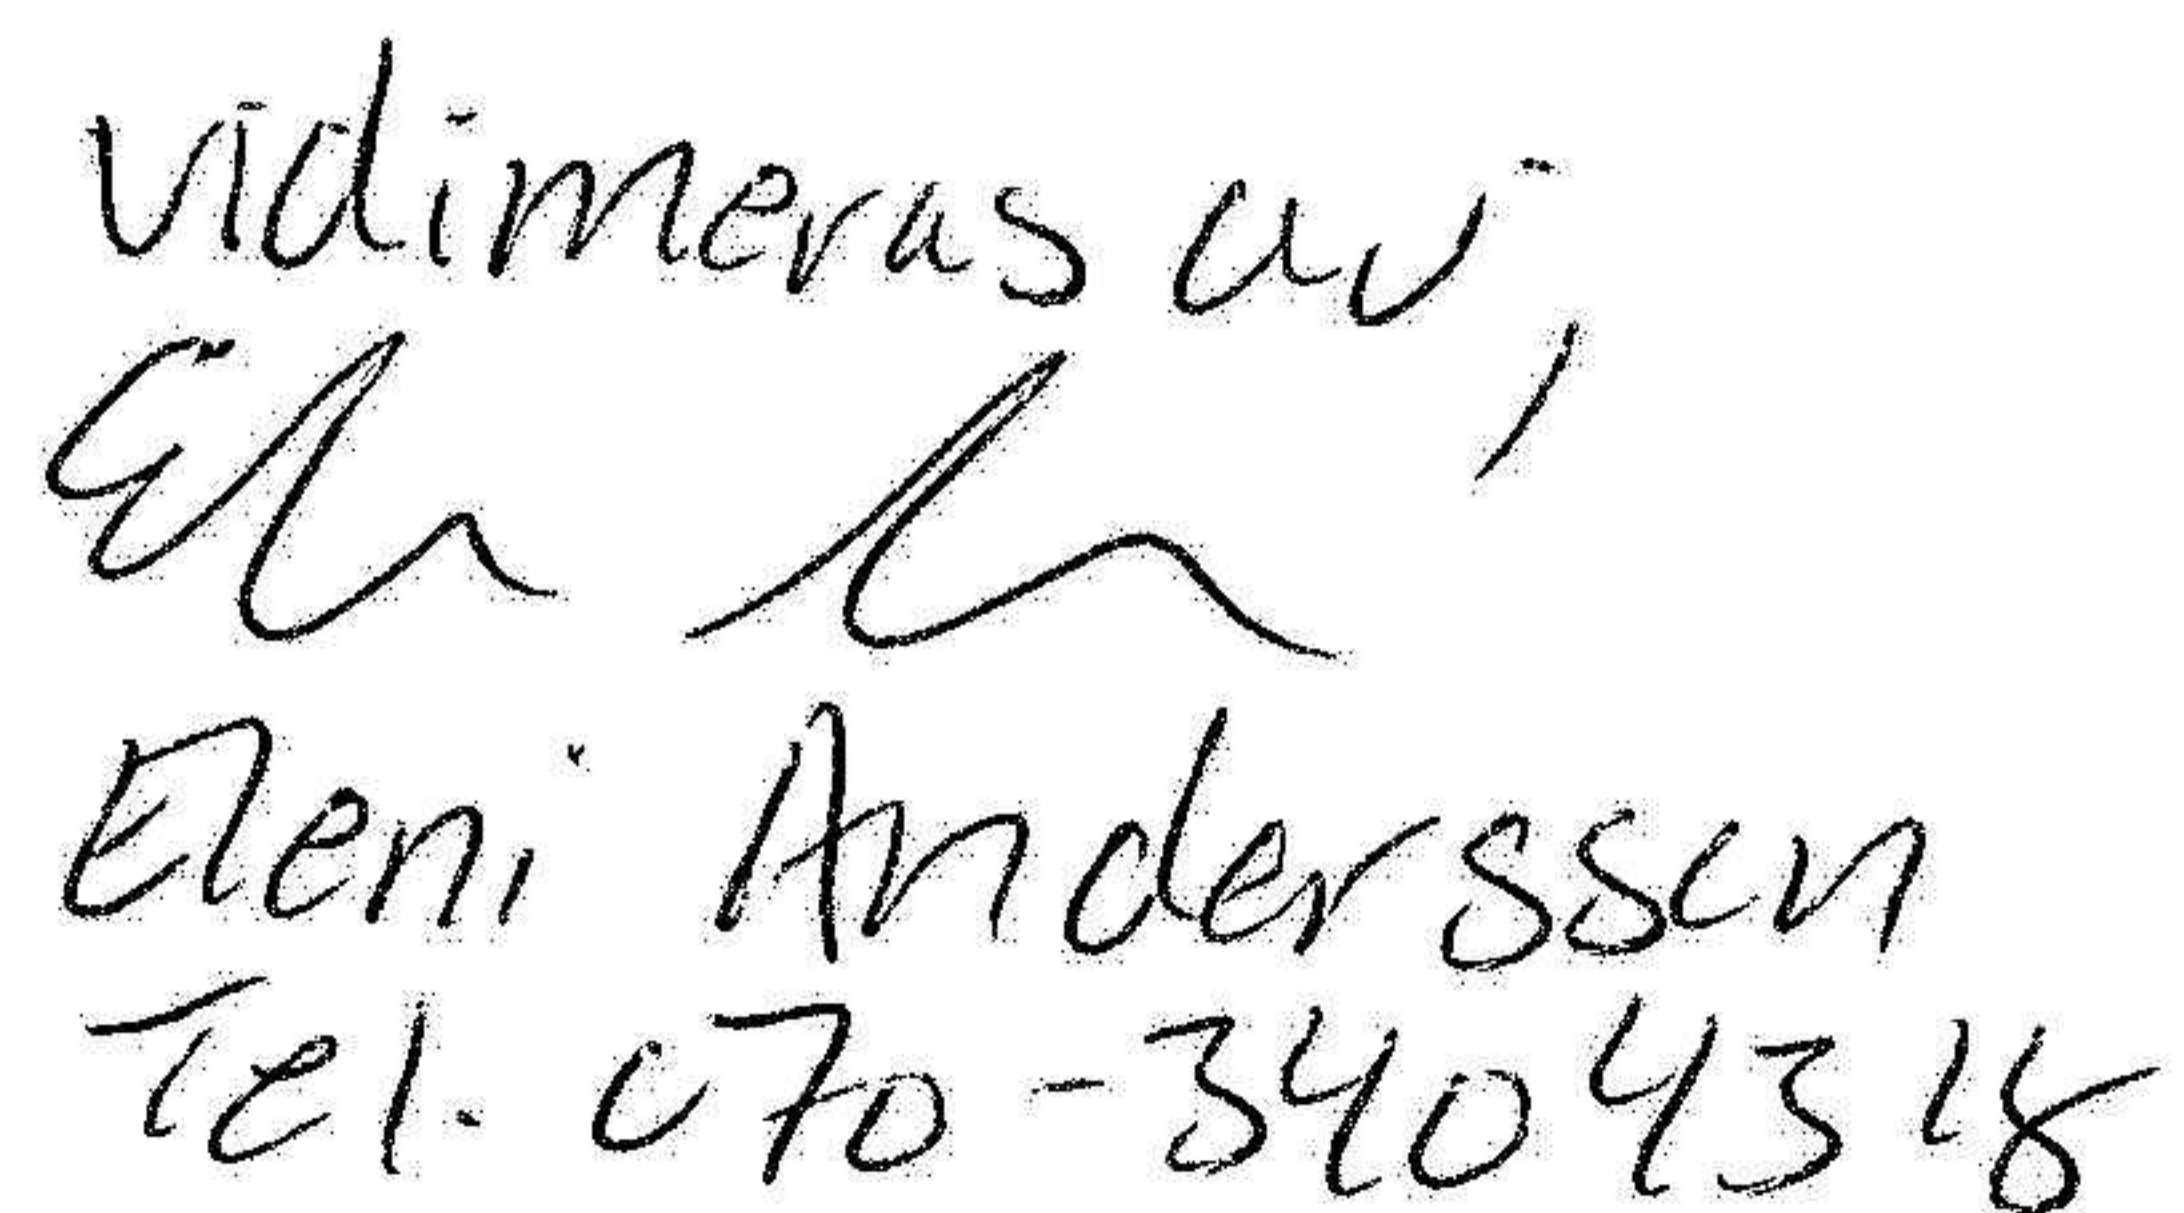 Vidimeras av;
Eleni Andersson
Tel. 070-340 43 18